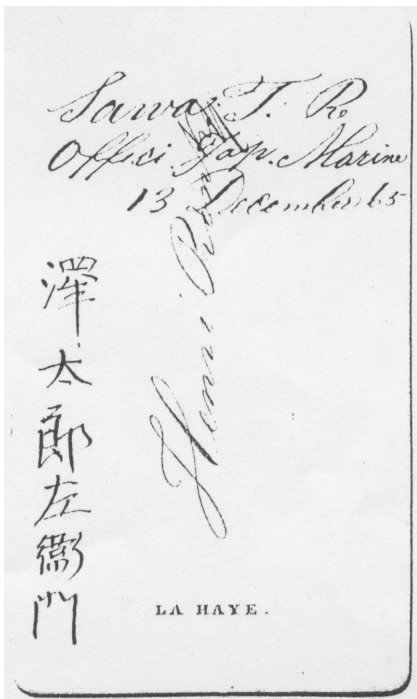 Sawa. T. Ro
Offici Jap. Marine
13 December 65
澤太郎左衛門
Henri
LA HAYE.